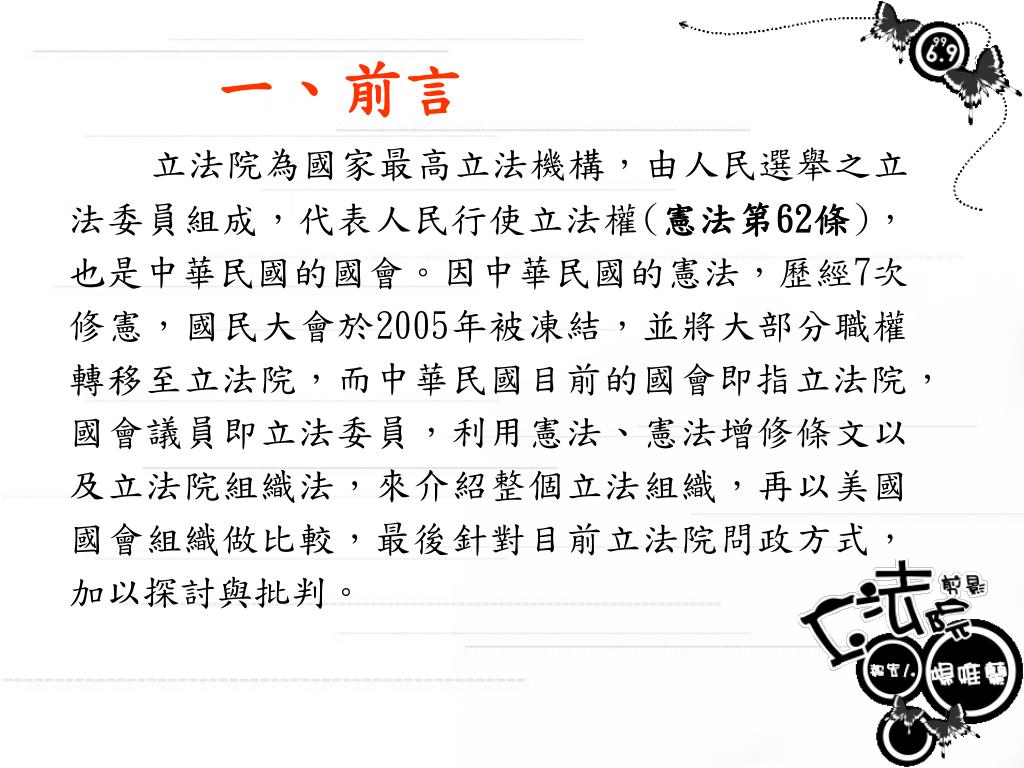 99
6.9
一、前言
立法院為國家最高立法機構，由人民選舉之立
法委員組成，代表人民行使立法權(憲法第62條)，
也是中華民國的國會。因中華民國的憲法，歷經7次
修憲，國民大會於2005年被凍結，並將大部分職權
轉移至立法院，而中華民國目前的國會即指立法院，
國會議員即立法委員，利用憲法、憲法增修條文以
及立法院組織法，來介紹整個立法組織，再以美國
國會組織做比較，最後針對目前立法院問政方式，
加以探討與批判。
立法院
剪影